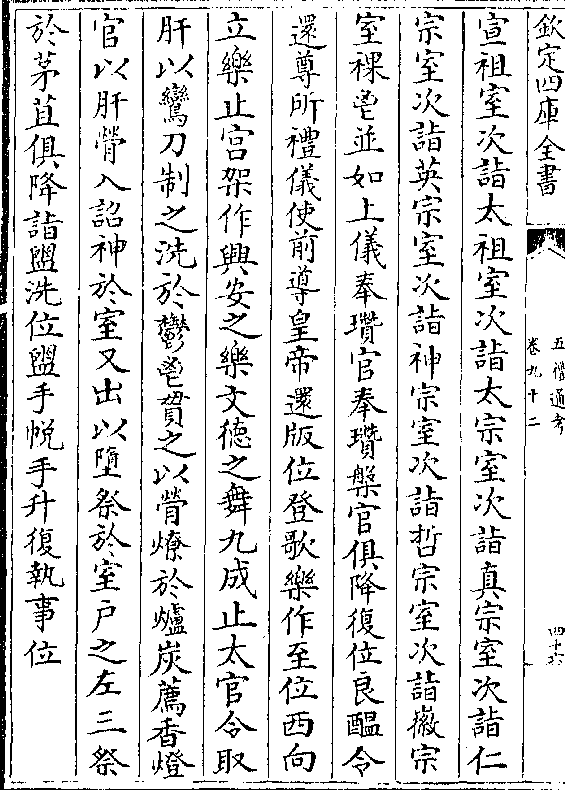 欽定四庫全書
五禮通考
卷九十二
四十六
宣祖室次詣太祖室次詣太宗室次詣真宗室次詣仁
宗室次詣英宗室次詣神宗室次詣哲宗室次詣徽宗
室祼鬯並如上儀奉瓚官奉瓚槃官俱降復位良醖令
還尊所禮儀使前導皇帝還版位登歌樂作至位西向
立樂止宫架作興安之樂文德之舞九成止太官令取
肝以鸞刀制之洗於鬱鬯貫之以膋燎於爐炭薦香燈
官以肝膋入詔神於室又出以墮祭於室戸之左三祭
於茅苴俱降詣盥洗位盥手帨手升復執事位